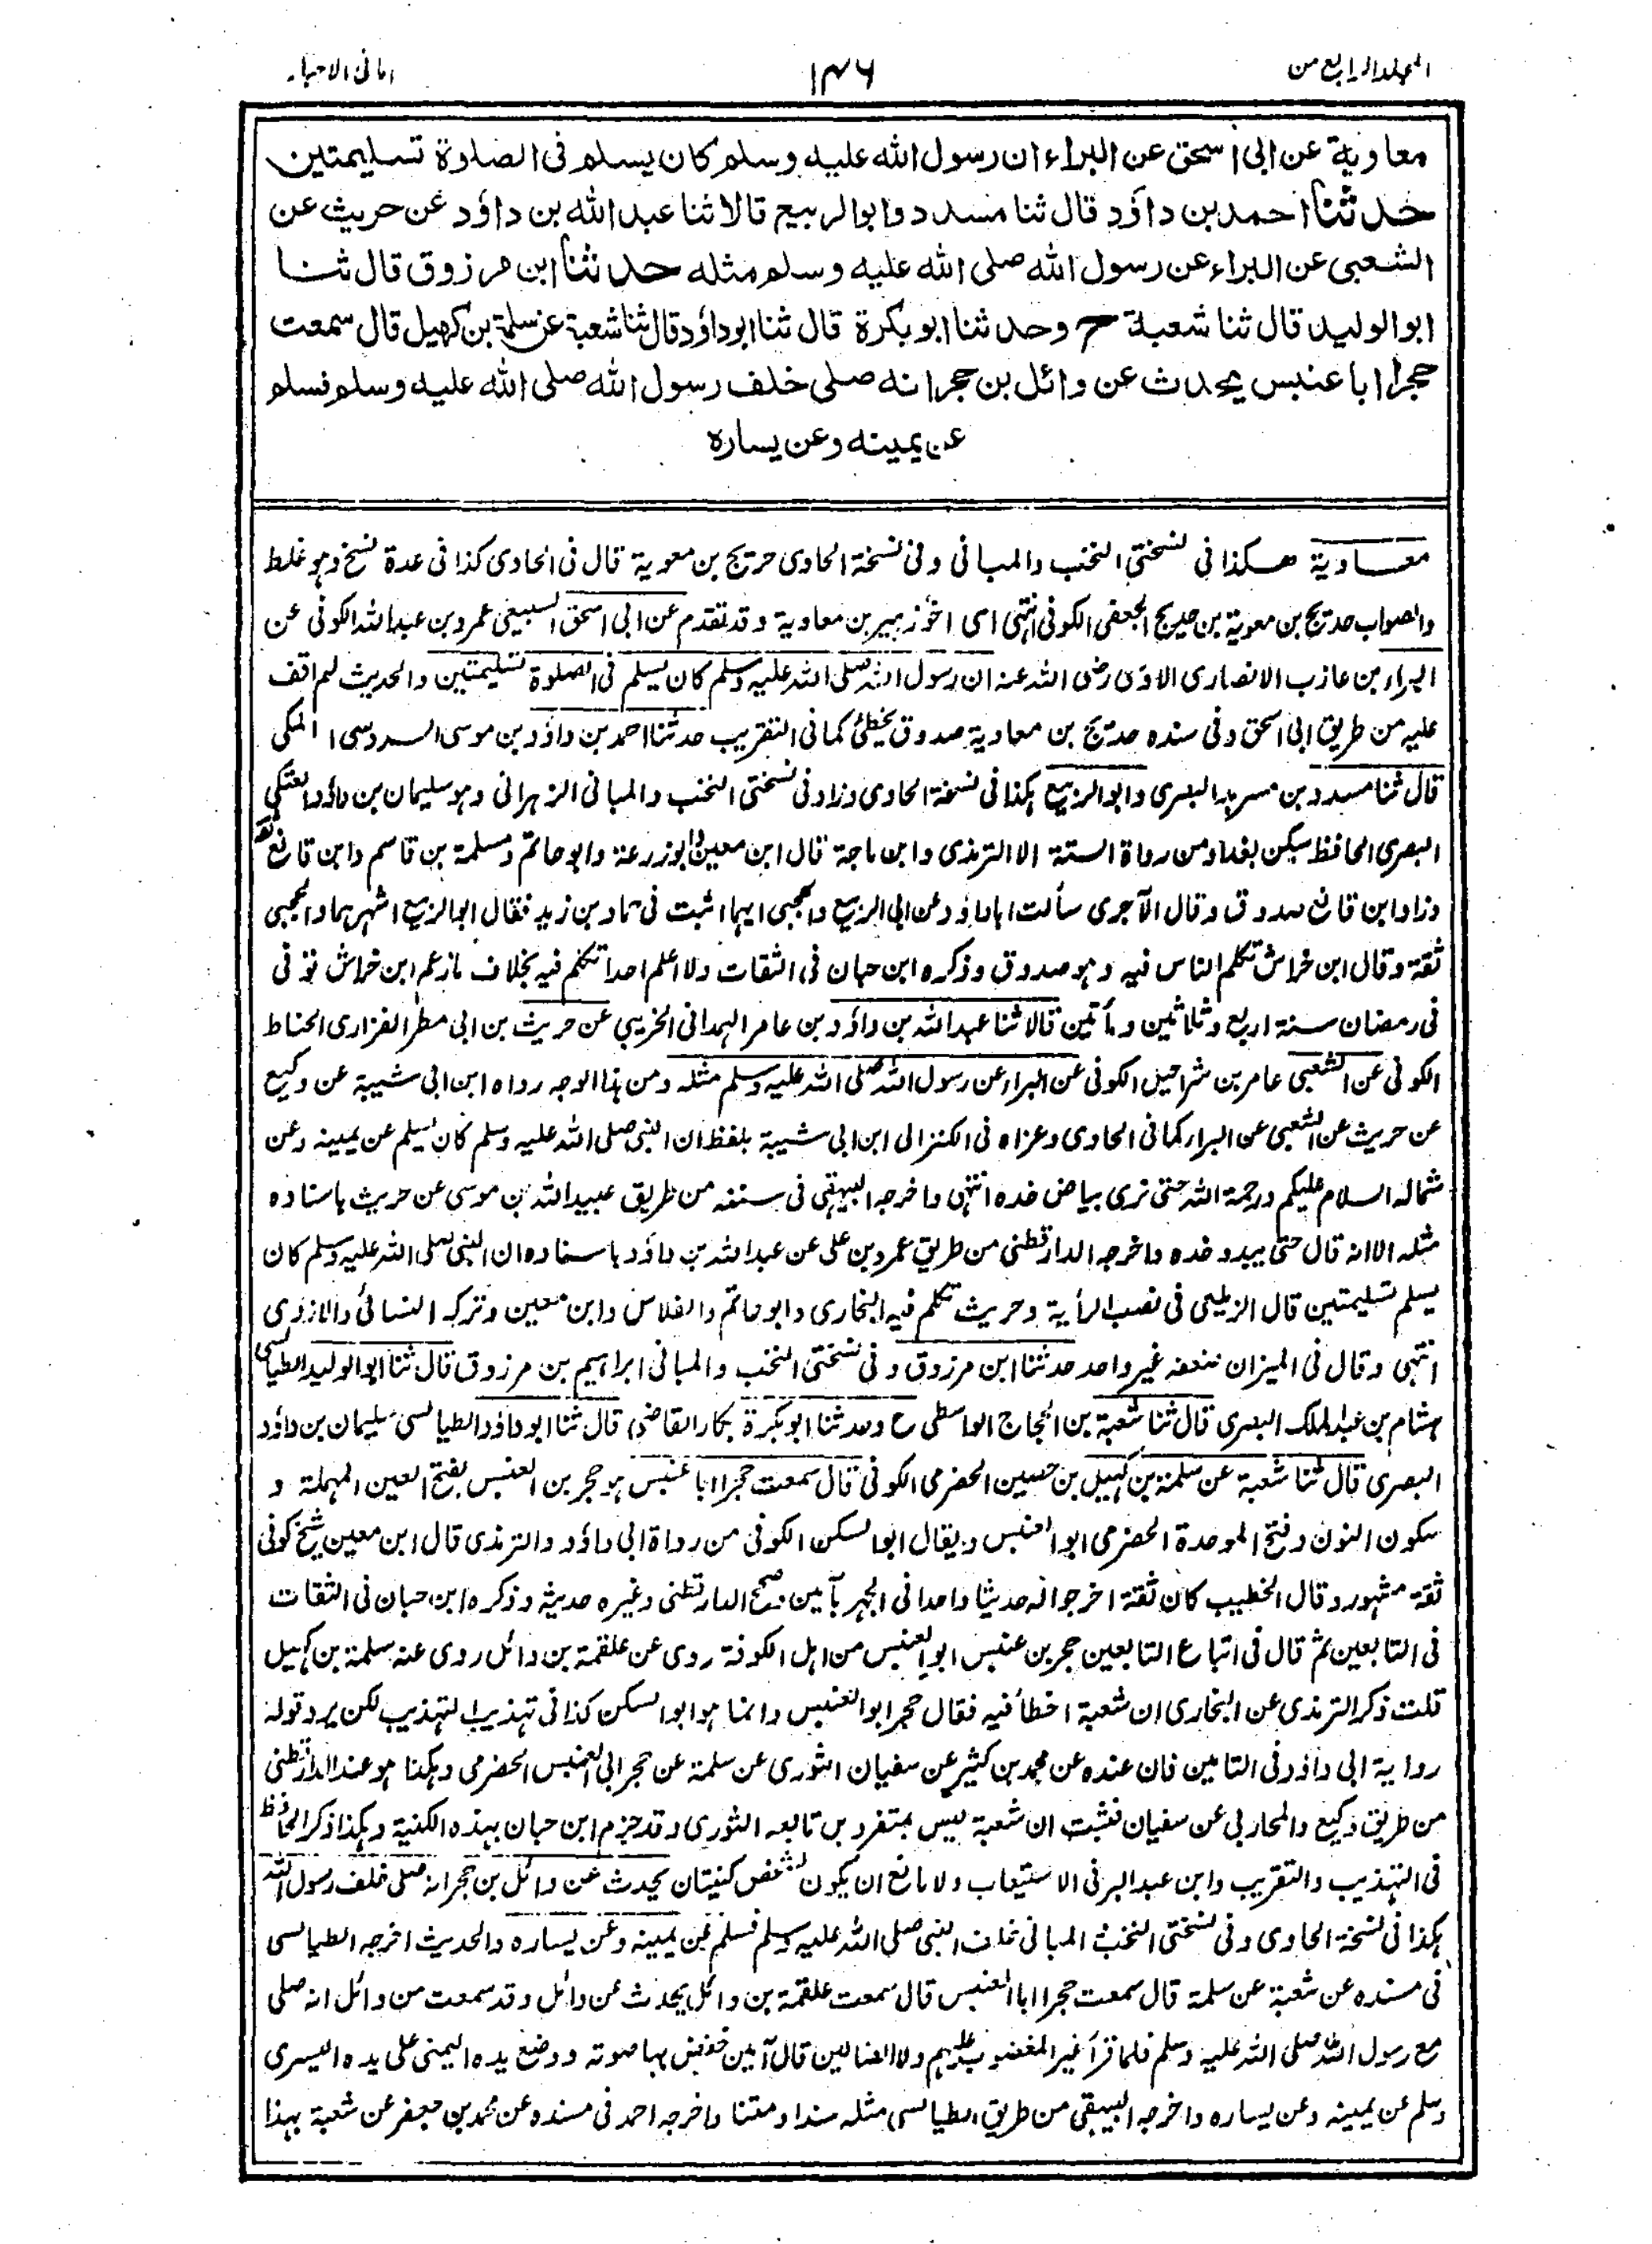 المجلد الرابع من
١٤٦
امانی الاحبار
معاوية عن ابی اسحق عن البراء ان رسول الله عليه وسلم كان يسلم فی الصلوة تسليمتين
حدثنا احمد بن داؤد قال ثنا مسدد وابو الربيع قالا ثنا عبد الله بن داؤد عن حريث عن
الشعبی عن البراء عن رسول الله صلی الله عليه وسلم مثله حدثنا ابن مرزوق قال ثنا
ابو الوليد قال ثنا شعبة ح وحدثنا ابو بكرة قال ثنا ابو داؤد قال ثنا شعبة عن سلمة بن كهيل قال سمعت
حجرا ابا عنبس يحدث عن وائل بن حجر انه صلی خلف رسول الله صلی الله عليه وسلم فسلم
عن يمينه وعن يساره
معاوية هكذا فی نسختی النخب والمبانی وفی نسخة الحاوی حريج بن معوية قال فی الحاوی كذا فی عدة نسخ وهو غلط
والصواب حديج بن معوية بن حديج الجعفی الكوفی انتهی ای اخو زهير بن معاوية وقد تقدم عن ابی اسحق السبيعی عمرو بن عبد الله الكوفی عن
البراء بن عازب الانصاری الاوسی رضی الله عنه ان رسول الله صلی الله عليه وسلم كان يسلم فی الصلوة تسليمتين والحديث لم اقف
عليه من طريق ابی اسحق وفی سنده حديج بن معاوية صدوق يخطئ كما فی التقريب حدثنا احمد بن داؤد بن موسی السدوسی المكی
قال ثنا مسدد بن مسرهد البصری وابو الربيع هكذا فی نسخة الحاوی وزاد فی نسختی النخب والمبانی الزهرانی وهو سليمان بن داؤد العتكی
البصری الحافظ سكن بغداد من رواة الستة الا الترمذی وابن ماجة قال ابن معين وابو زرعة وابو حاتم ومسلمة بن قاسم وابن قانع ثقة
وزاد ابن قانع صدوق وقال الآجری سألت ابا داؤد عن ابی الربيع والحجبی ايهما اثبت فی حماد بن زيد فقال ابو الربيع اشهرهما والحجبی
ثقة وقال ابن خراش تكلم الناس فيه وهو صدوق وذكره ابن حبان فی الثقات ولا اعلم احدا تكلم فيه بخلاف ما زعم ابن خراش توفی
فی رمضان سنة اربع وثلاثين ومأتين قالا ثنا عبد الله بن داؤد بن عامر الهمدانی الخريبی عن حريث بن ابی مطر الفزاری الحناط
الكوفی عن الشعبی عامر بن شراحيل الكوفی عن البراء عن رسول الله صلی الله عليه وسلم مثله ومن هذا الوجه رواه ابن ابی شيبة عن وكيع
عن حريث عن الشعبی عن البراء كما فی الحاوی وعزاه فی الكنز الی ابن ابی شيبة بلفظ ان النبی صلی الله عليه وسلم كان يسلم عن يمينه وعن
شماله السلام عليكم ورحمة الله حتی نری بياض خده انتهی واخرجه البيهقی فی سننه من طريق عبيد الله بن موسی عن حريث باسناده
مثله الا انه قال حتی يبدو خده واخرجه الدارقطنی من طريق عمرو بن علی عن عبد الله بن داؤد باسناده ان النبی صلی الله عليه وسلم كان
يسلم تسليمتين قال الزيلعی فی نصب الرأية وحريث تكلم فيه البخاری وابو حاتم والفلاس وابن معين وتركه النسائی والازدی
انتهی وقال فی الميزان ضعفه غير واحد حدثنا ابن مرزوق وفی نسختی النخب والمبانی ابراهيم بن مرزوق قال ثنا ابو الوليد الطيالسی
هشام بن عبد الملك البصری قال ثنا شعبة بن الحجاج الواسطی ح وحدثنا ابو بكرة بكار القاضی قال ثنا ابو داؤد الطيالسی سليمان بن داؤد
البصری قال ثنا شعبة عن سلمة بن كهيل بن حصين الحضرمی الكوفی قال سمعت حجرا ابا عنبس هو حجر بن العنبس بفتح العين المهملة و
سكون النون وفتح الموحدة الحضرمی ابو العنبس ويقال ابو السكن الكوفی من رواة ابی داؤد والترمذی قال ابن معين شيخ كوفی
ثقة مشهور وقال الخطيب كان ثقة اخرجوا له حديثا واحدا فی الجهر بآمين صحح الدارقطنی وغيره حديثه وذكره ابن حبان فی الثقات
فی التابعين ثم قال فی اتباع التابعين حجر بن عنبس ابو العنبس من اهل الكوفة روی عن علقمة بن وائل روی عنه سلمة بن كهيل
قلت ذكر الترمذی عن البخاری ان شعبة اخطأ فيه فقال حجر ابو العنبس وانما هو ابو السكن كذا فی تهذيب التهذيب لكن يرد قوله
رواية ابی داؤد فی التامين فان عنده عن محمد بن كثير عن سفيان الثوری عن سلمة عن حجر ابی العنبس الحضرمی وهكذا هو عند الدارقطنی
من طريق وكيع والمحاربی عن سفيان فثبت ان شعبة ليس بمتفرد بل تابعه الثوری وقد جزم ابن حبان بهذه الكنية وهكذا ذكر الحافظ
فی التهذيب والتقريب وابن عبد البر فی الاستيعاب ولا مانع ان يكون لشخص كنيتان يحدث عن وائل بن حجر انه صلی خلف رسول الله
هكذا فی نسخة الحاوی وفی نسختی النخب المبانی خلف النبی صلی الله عليه وسلم فسلم عن يمينه وعن يساره والحديث اخرجه الطيالسی
فی مسنده عن شعبة عن سلمة قال سمعت حجرا ابا العنبس قال سمعت علقمة بن وائل يحدث عن وائل وقد سمعت من وائل انه صلی
مع رسول الله صلی الله عليه وسلم فلما قرأ غير المغضوب عليهم ولا الضالين قال آمين خفض بها صوته ووضع يده اليمنی علی يده اليسری
وسلم عن يمينه وعن يساره واخرجه البيهقی من طريق الطيالسی مثله سندا ومتنا واخرجه احمد فی مسنده عن محمد بن جعفر عن شعبة بهذا